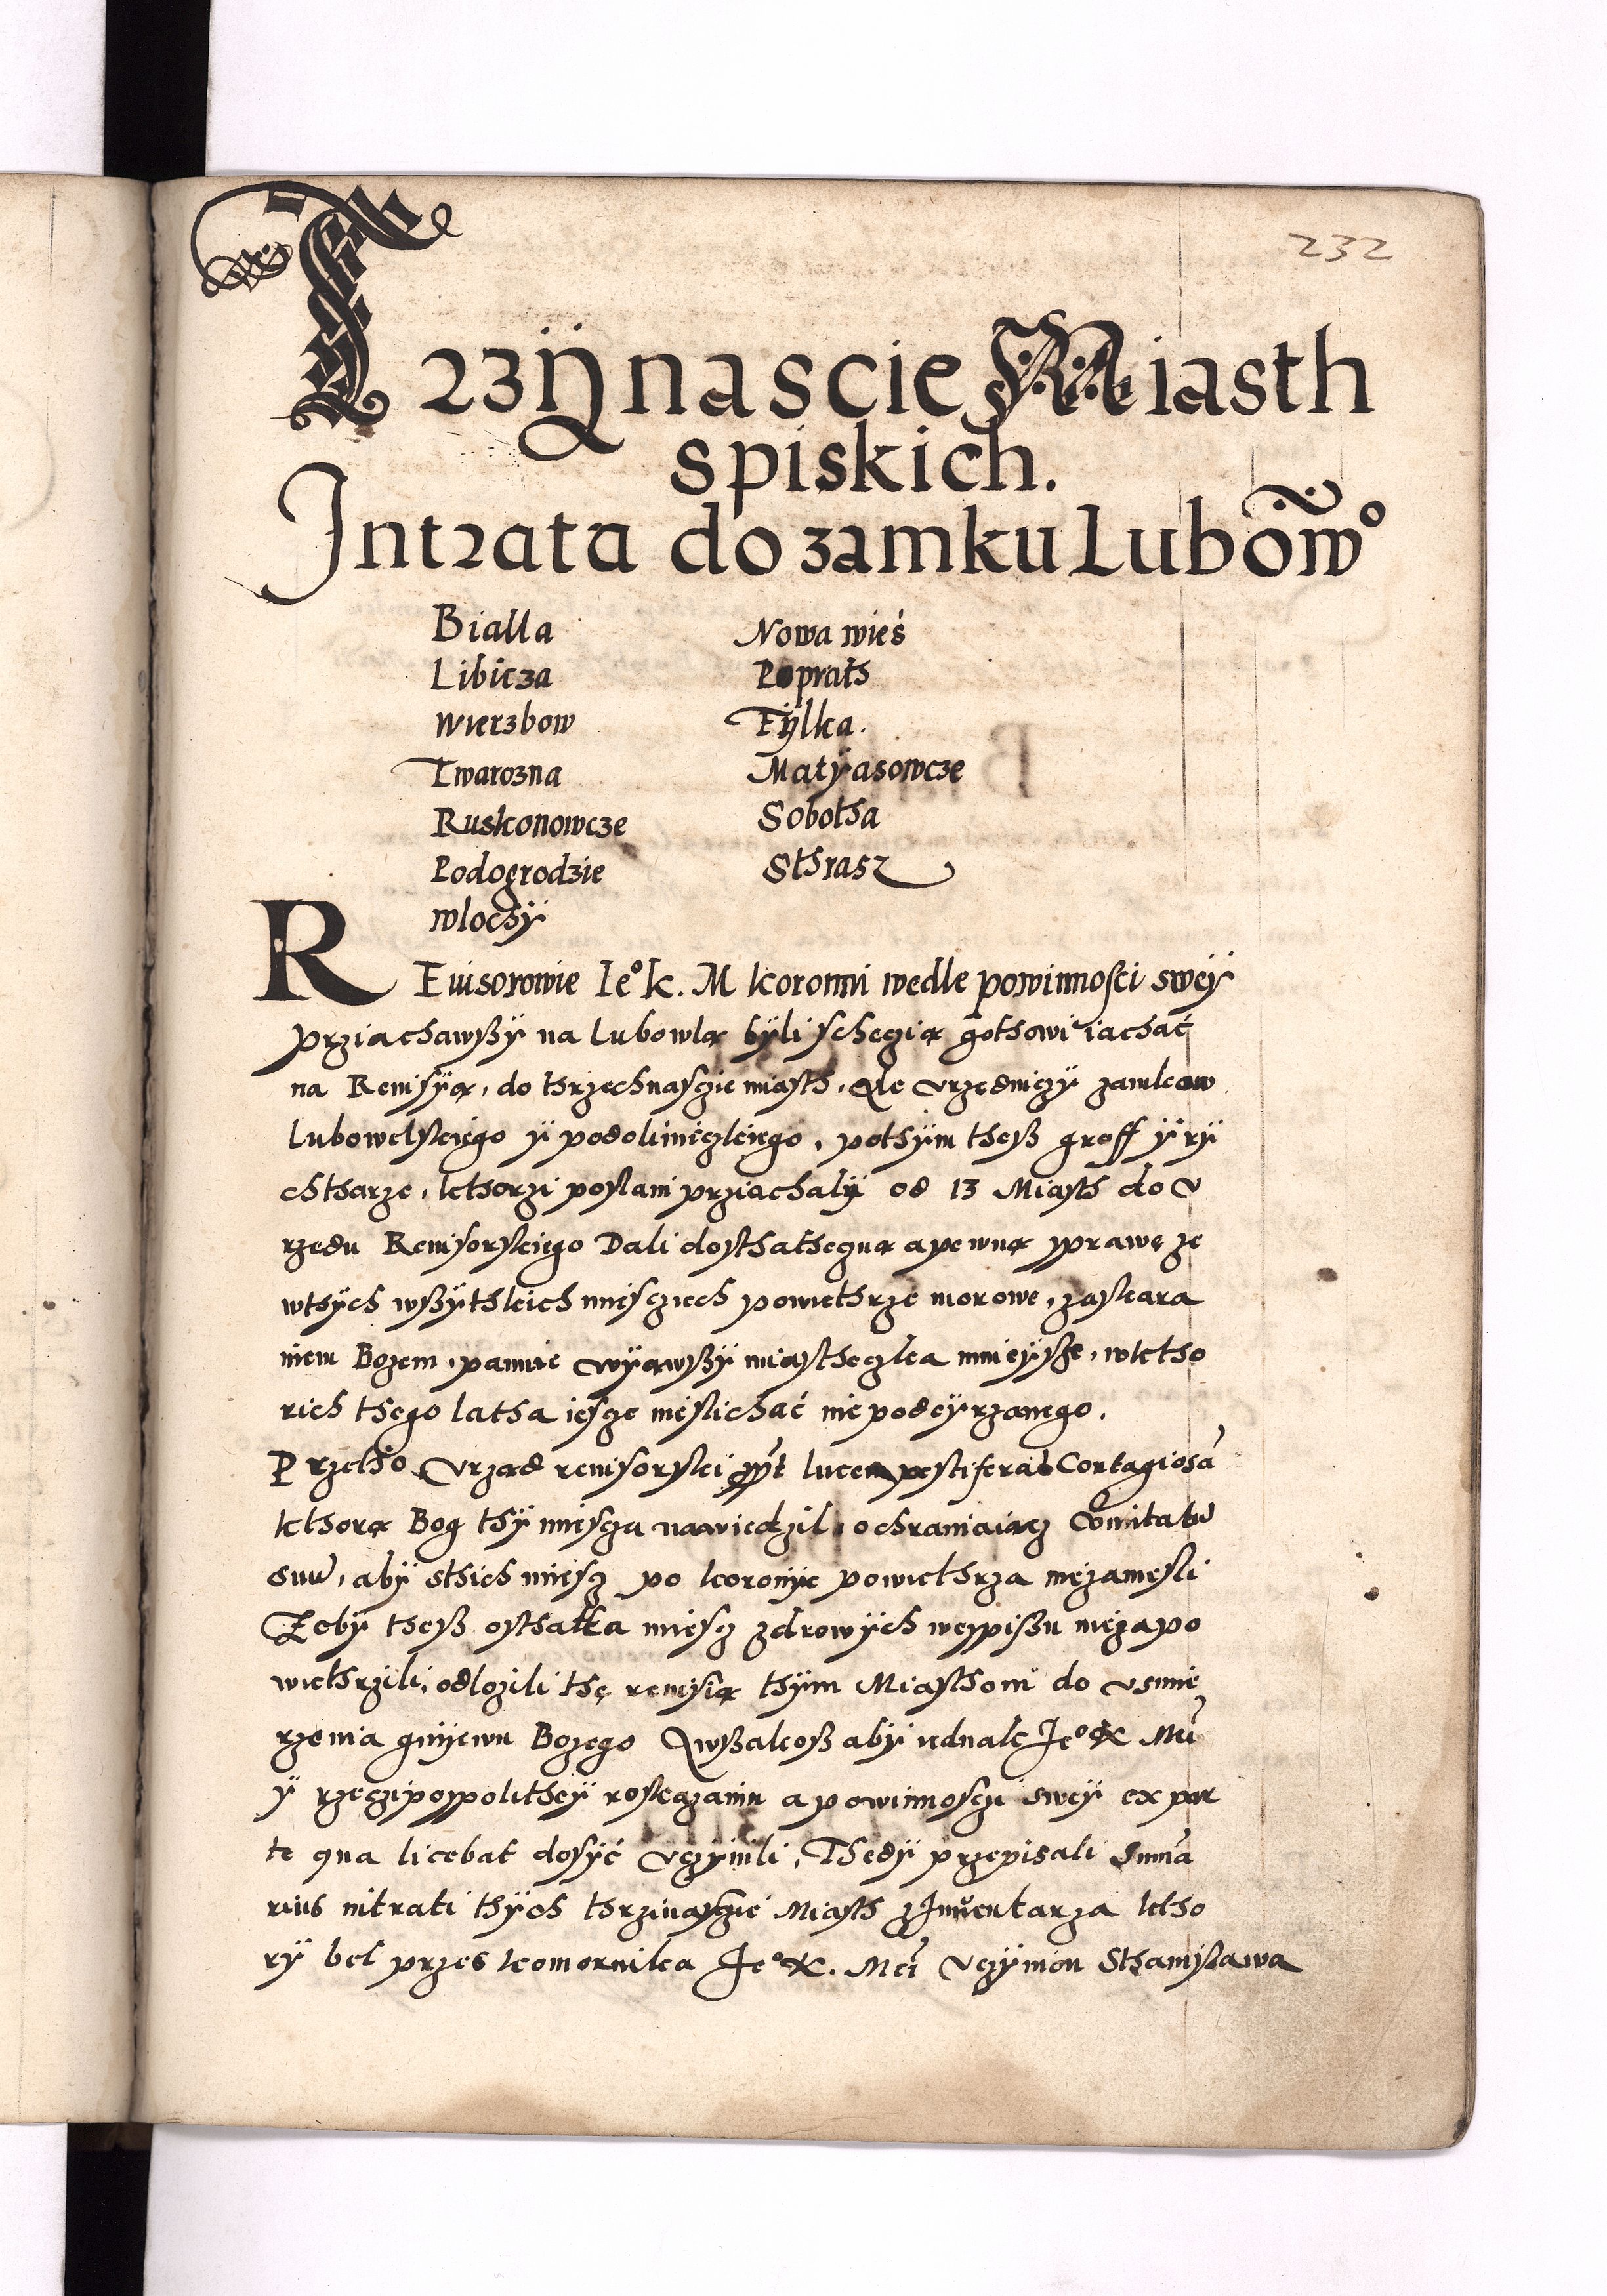 232
Trzÿnascie Miasth
spiskich.
Intrata do zamku Lubow̃º
Bialla
Libicza
Wierzbow
Twarozna
Ruskonowcze
Podogrodzie
Wlochÿ
Nowa wieś
Poprath
Fÿlka.
Matÿasowcze
Sobotha
Sthrasz
REuisorowie Ieº k. M koronni wedle powinnosci sweÿ
prziachawßÿ na Lubowlą bÿli schęcią gothowi iachać
na Reuisÿą, do thrzechnasczie miasth, Ale vrzedniczÿ zamkow
Lubowelskiego ÿ podolinieczkiego, pothÿm theß groff ÿ rÿ
chtharze, kthorzi poslani prziachalÿ od 13 Miasth do v
rzedu Reuisorskiego Dali dosthatheczną a pewną sprawę ze
wthÿch wßÿthkich miescziech powiethrze morowe, zaskara
niem Bozem, panuie wÿąwßÿ miastheczka mnieÿsze, wktho
rich thego latha iescze nieslichać nie podeÿrzanego.
Przetho Vrząd reuisorski ppt lucem pestiferā Contagiosā
kthorą Bog thÿ miescza nawiedzil, ochraniaiącz Comitatū
suū, abÿ sthich miescz po koronÿe powiethrza niezaniesli
Zebÿ theß osthatka miescz zdrowÿch wespißu niezapo
wiethrzili, odlozili thę reuisią thÿm Miasthom do vsmie
rzenia gnÿewu Bozego Awßakoß abÿ iednak Ieº K Mci
ÿ rzeczipospolitheÿ roskazaniu a powinnosczi sweÿ ex par
te qua licebat dosÿć vczynili, Thedÿ przepisali Suma
rius intrati thÿch thrzinasczie Miasth z Inwentarza ktho
rÿ bel przes komornika Ieº K. Mci vczÿnion Sthanislawa